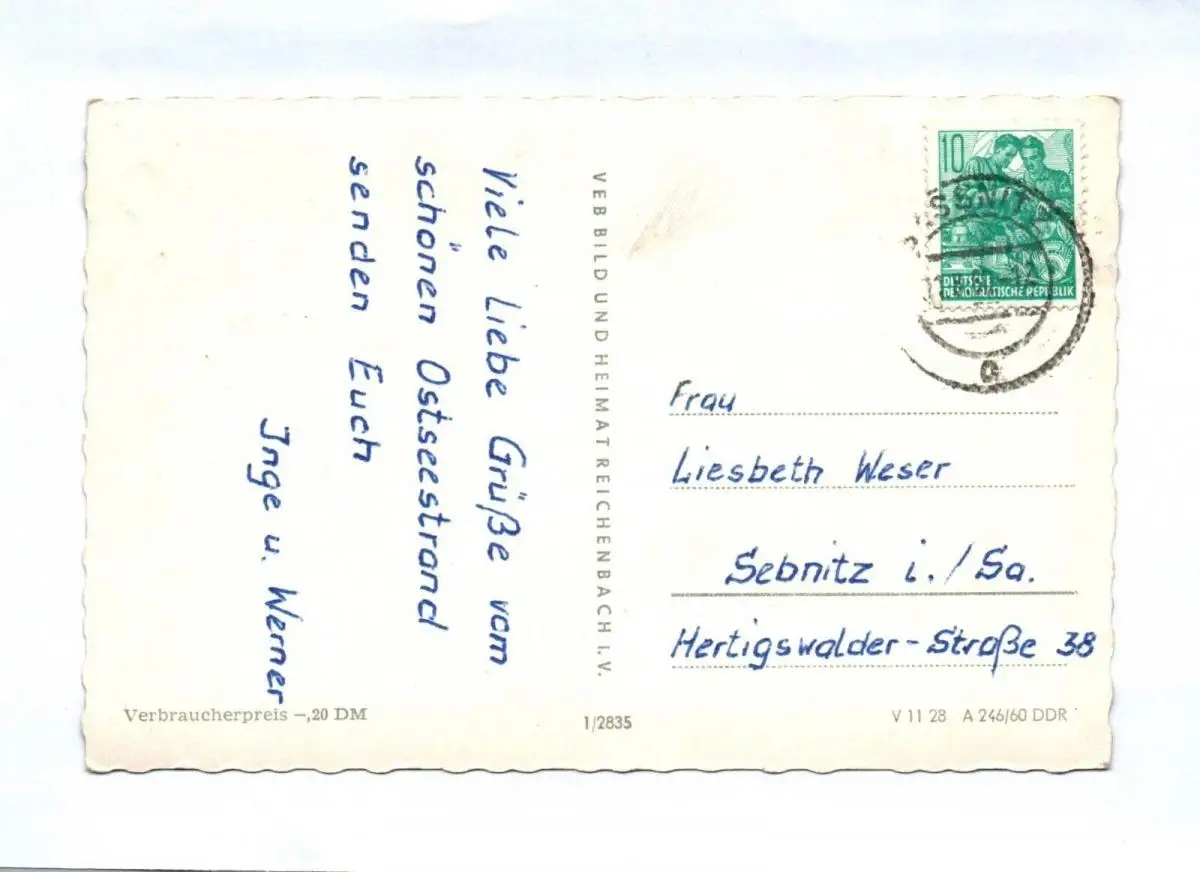 Viele liebe Grüße vom
schönen Ostseestrand
senden Euch
Inge u. Werner
VEB BILD UND HEIMAT REICHENBACH I. V.
10
DEUTSCHE
DEMOKRATISCHE REPUBLIK
a
Frau
Liesbeth Weser
Sebnitz i./Sa.
Hertigswalder-Straße 38
Verbraucherpreis –,20 DM
1/2835
V 11 28 A 246/60 DDR